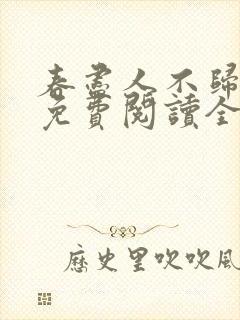 春盡人不歸
免費閱讀全
歷史里吹吹風